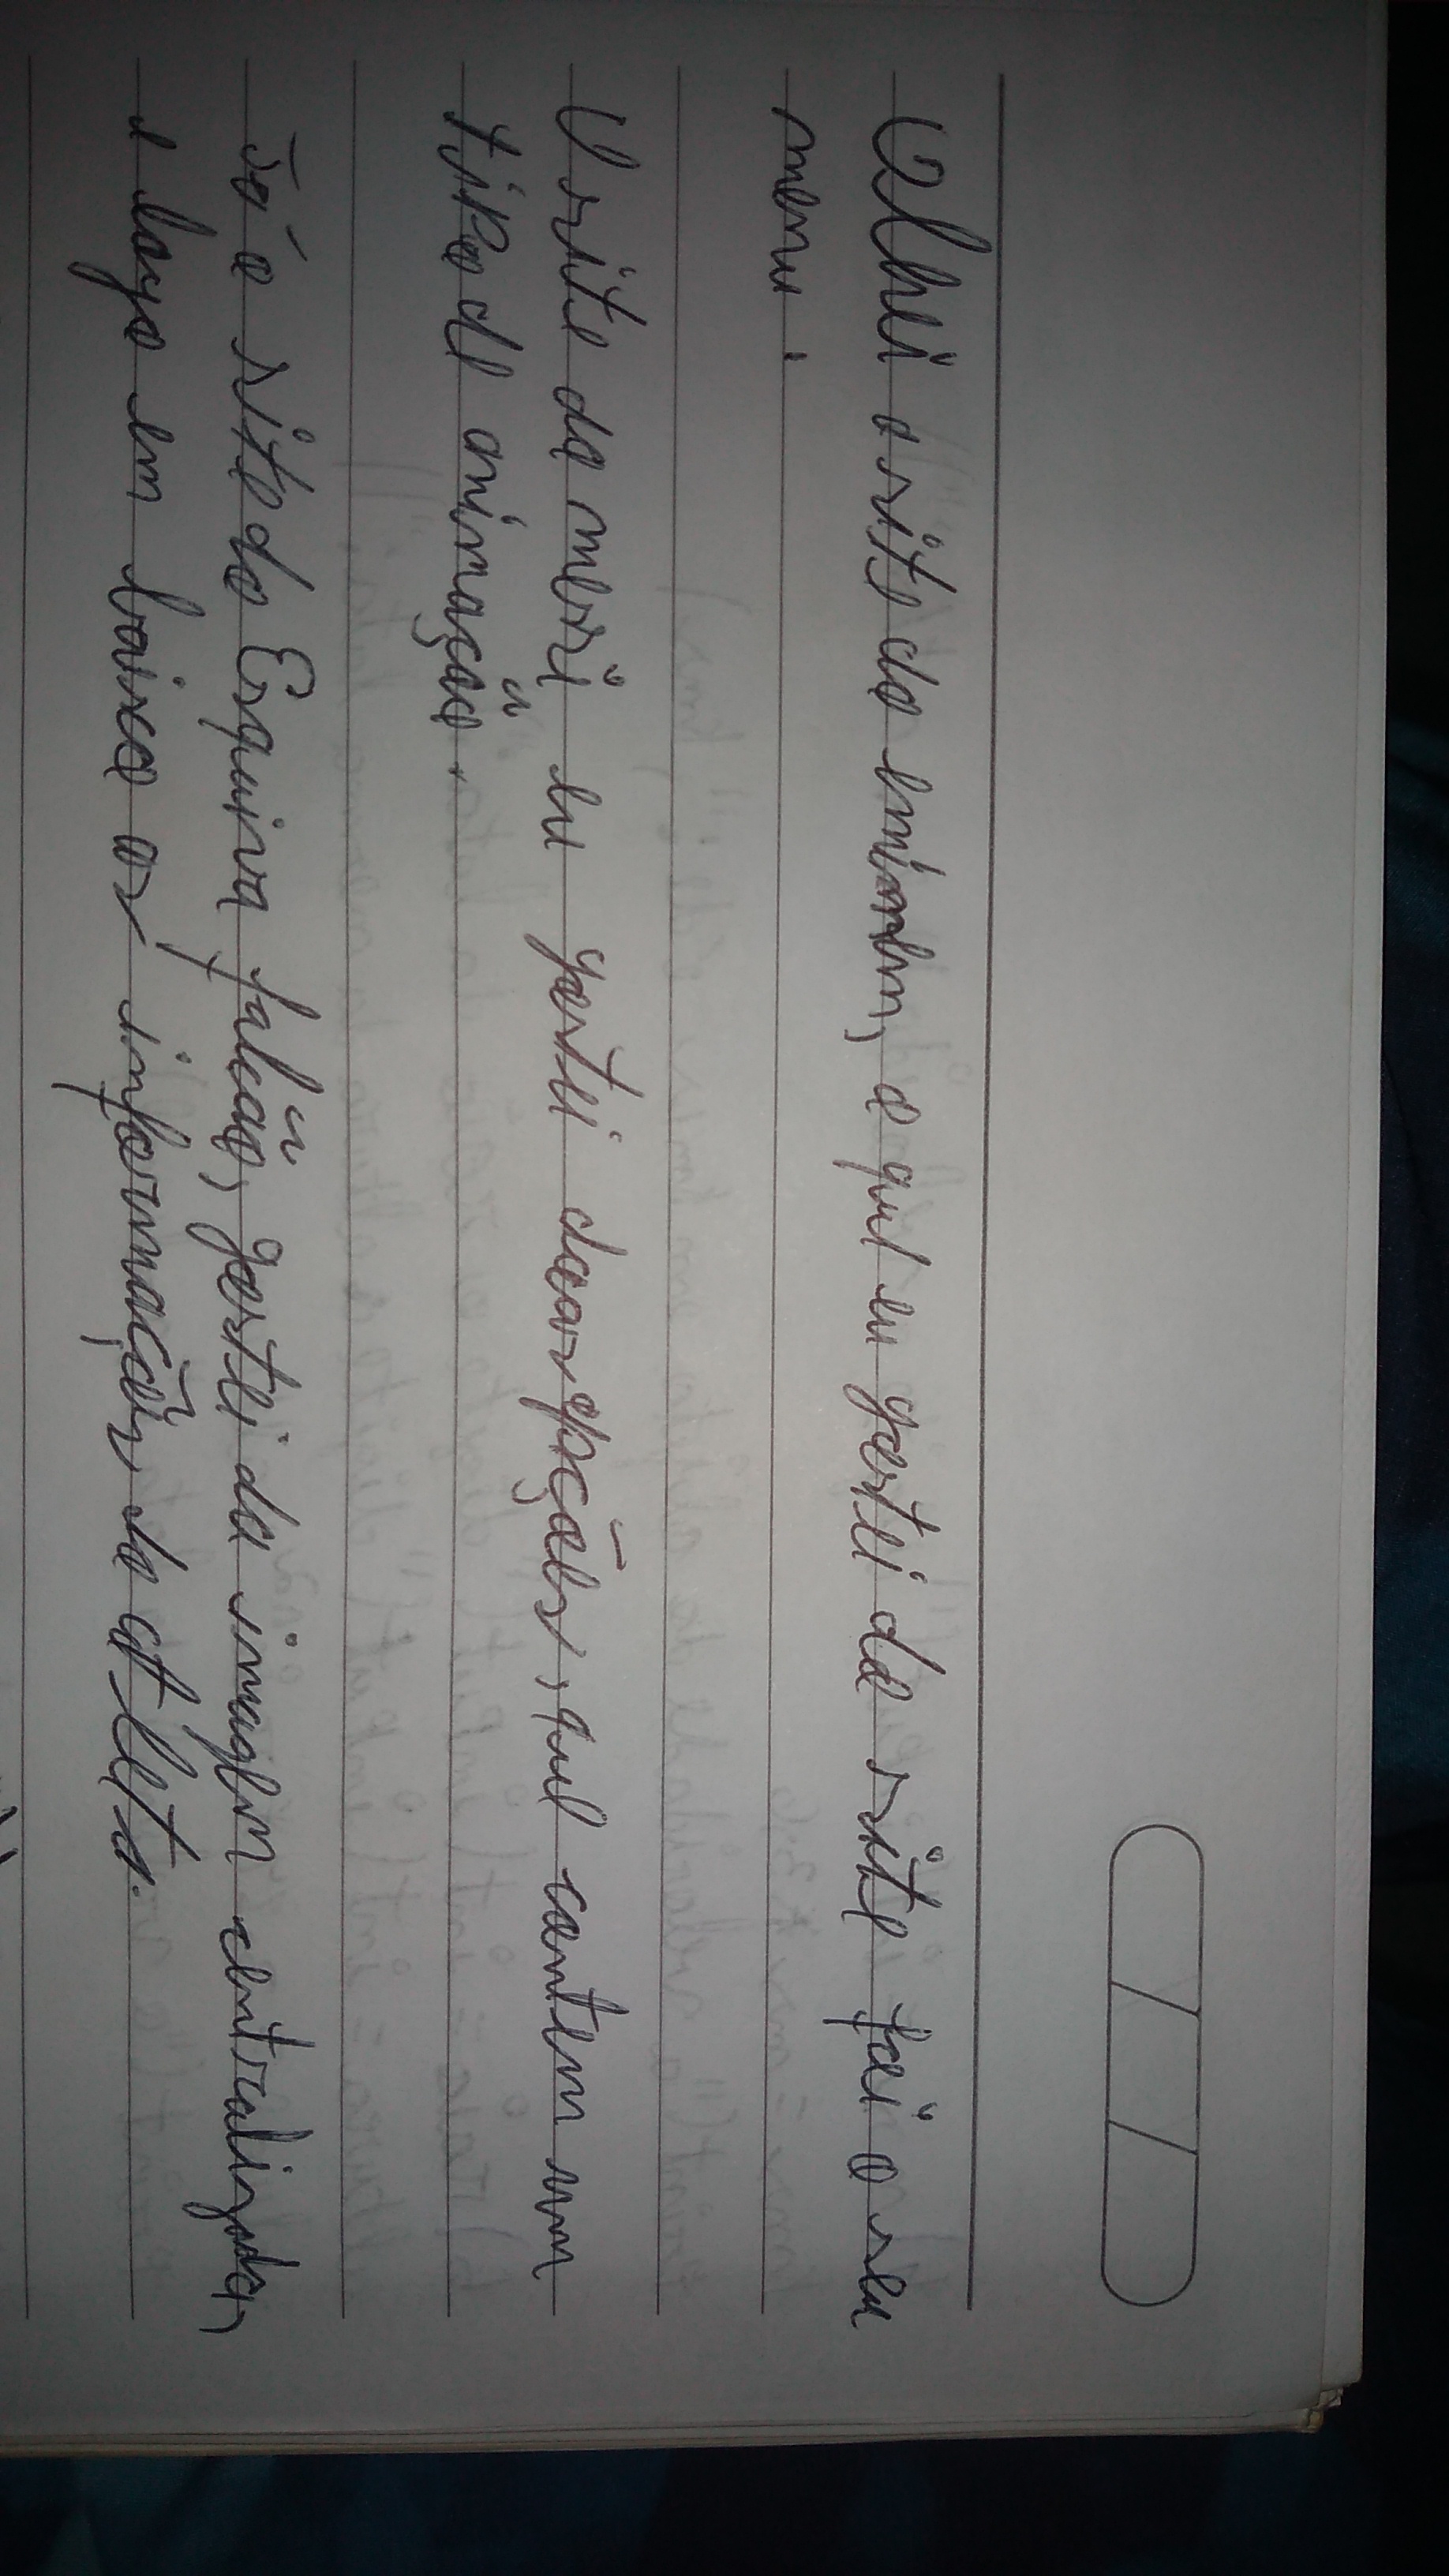 Olhei o site do eminem, o que eu gostei do site foi o seu
menu.
O site do messi eu gostei das opções, que contem um
tipo de animação.
Já o site do Esquiva falcão, gostei da imagem centralizada,
e logo em baixo as informações do atleta.